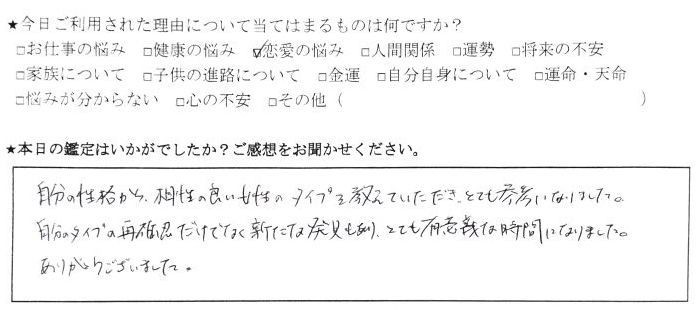 ★今日ご利用された理由について当てはまるものは何ですか？
□お仕事の悩み □健康の悩み ☑恋愛の悩み □人間関係 □運勢 □将来の不安
□家族について □子供の進路について □金運 □自分自身について □運命・天命
□悩みが分からない □心の不安 □その他（ ）
★本日の鑑定はいかがでしたか？ご感想をお聞かせください。
自分の性格から、相性の良い女性のタイプを教えていただき、とても参考になりました。
自分のタイプの再確認だけでなく新たな発見もあり、とても有意義な時間になりました。
ありがとうございました。